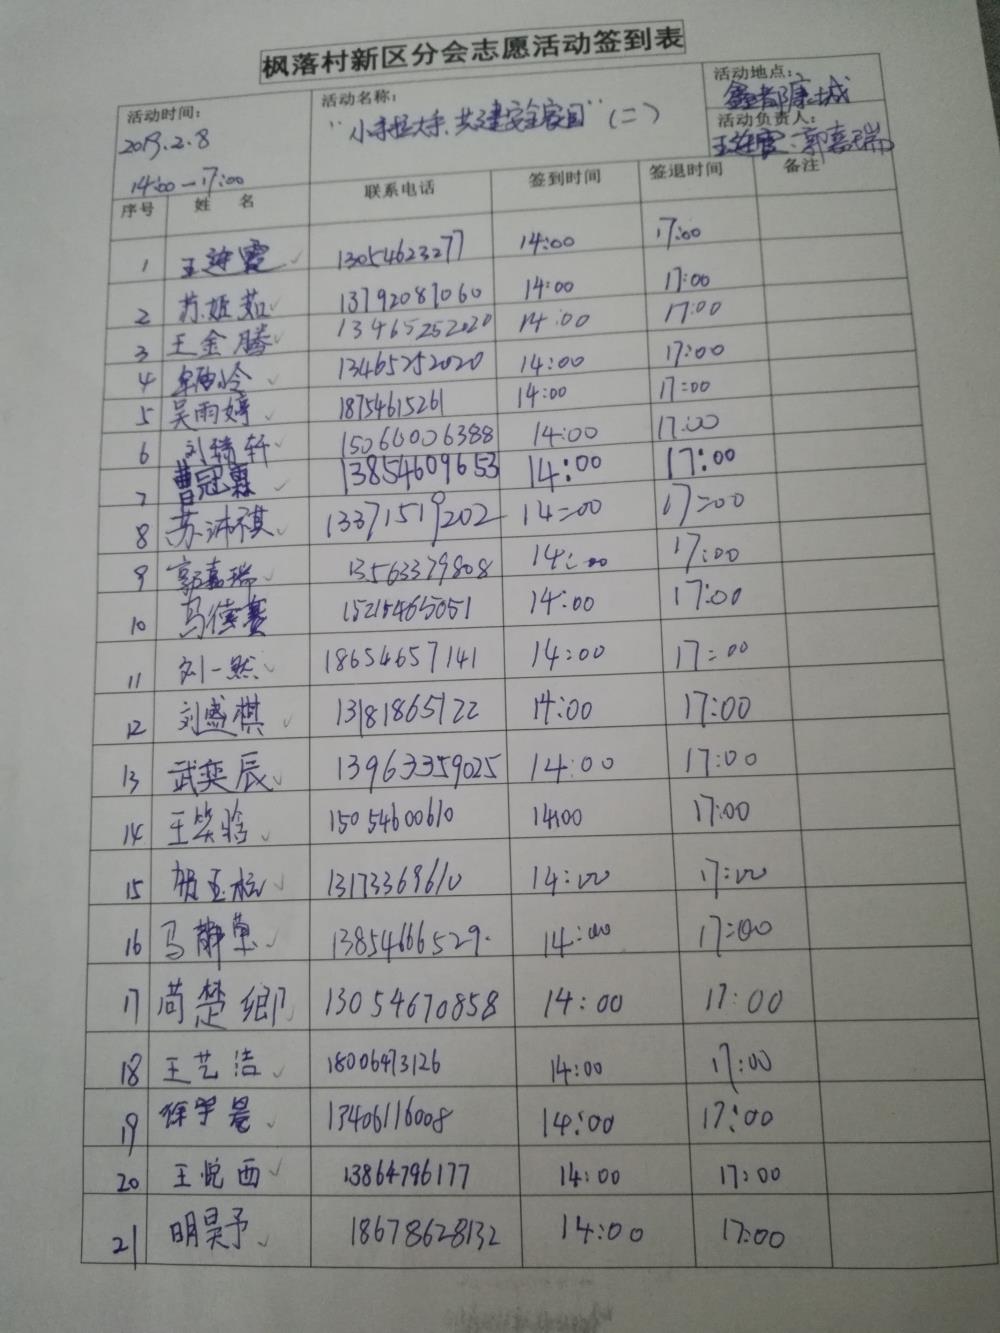 枫落村新区分会志愿活动签到表
活动时间:
2019.2.8
14:00—17:00
活动名称:
"小手拉大手、共建安全家园"(二)
活动地点:
鑫都康城
活动负责人:
王莲霞、郭嘉瑞
序号 姓 名 联系电话 签到时间 签退时间 备注
1 王莲霞 13054623277 14:00 17:00
2 苏姬茹 13792087060 14:00 17:00
3 王金腾 13465252020 14:00 17:00
4 13465252020 14:00 17:00
5 吴雨婷 18754615261 14:00 17:00
6 刘绮轩 15066006388 14:00 17:00
7 曹冠霖 13854609653 14:00 17:00
8 苏沐祺 13371519202 14:00 17:00
9 郭嘉瑞 13563379808 14:00 17:00
10 马德赛 15215465051 14:00 17:00
11 刘一然 18654657141 14:00 17:00
12 刘盛祺 13181865722 14:00 17:00
13 武奕辰 13963359025 14:00 17:00
14 王笑晗 15054600610 14:00 17:00
15 贺玉柽 13173369610 14:00 17:00
16 马静草 13854666529 14:00 17:00
17 苘楚卿 13054670858 14:00 17:00
18 王艺洁 18006473126 14:00 17:00
19 徐宇晨 13406116008 14:00 17:00
20 王悦西 13864796177 14:00 17:00
21 明昊予 18678628132 14:00 17:00